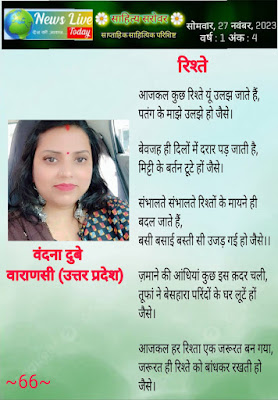 News Live
देश की आवाज़
Today
साहित्य सरोवर
साप्ताहिक साहित्यिक परिशिष्ट
सोमवार, 27 नवंबर, 2023
वर्ष : 1 अंक : 4
रिश्ते
आजकल कुछ रिश्ते यूं उलझ जाते हैं,
पतंग के माझे उलझे हो जैसे।
बेवजह ही दिलों में दरार पड़ जाती है,
मिट्टी के बर्तन टूटे हों जैसे।
संभालते संभालते रिश्तों के मायने ही
बदल जाते हैं,
बसी बसाई बस्ती सी उजड़ गई हो जैसे।।
ज़माने की आंधियां कुछ इस क़दर चली,
तूफां ने बेसहारा परिंदों के घर लूटें हों
जैसे।
आजकल हर रिश्ता एक जरूरत बन गया,
जरूरत ही रिश्ते को बांधकर रखती हो
जैसे।
वंदना दुबे
वाराणसी (उत्तर प्रदेश)
~66~